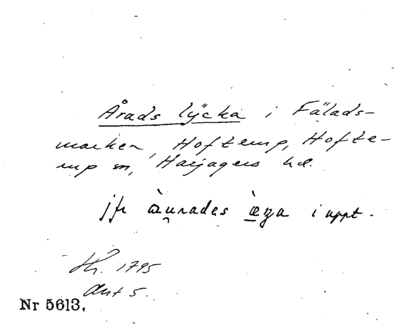 Årads lycka i Fälads-
marken, Hofterup, Hofte-
rup sn, Harjagers hd.
jfr àu̯rades ega i uppt.
Hr. 1795
Akt 5.
Nr 5613.